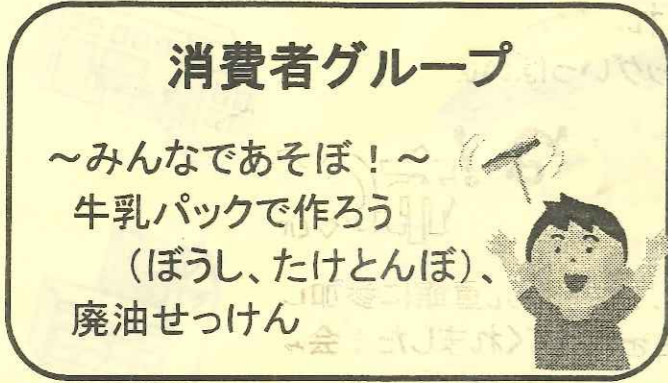 消費者グループ
～みんなであそぼ！～
牛乳パックで作ろう
（ぼうし、たけとんぼ）、
廃油せっけん